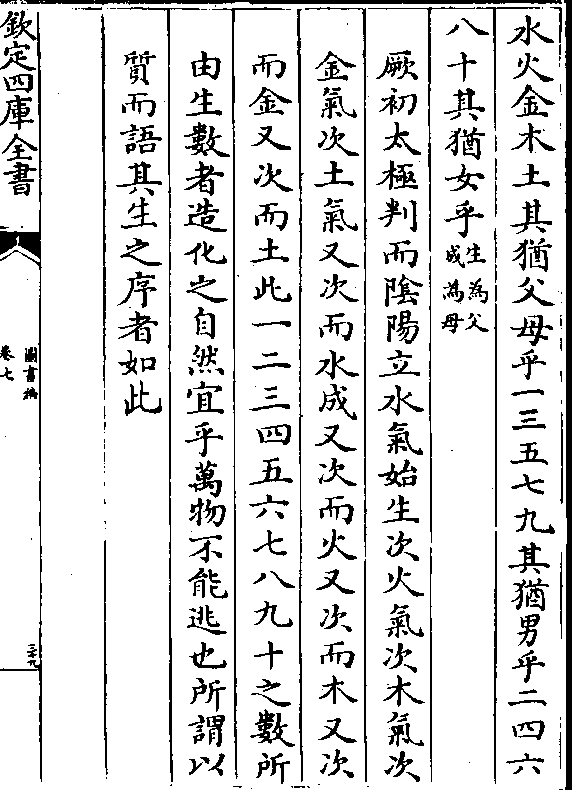 水火金木土其猶父母乎一三五七九其猶男乎二四六
八十其猶女乎生為父成為母
厥初太極判而陰陽立水氣始生次火氣次木氣次
金氣次土氣又次而水成又次而火又次而木又次
而金又次而土此一二三四五六七八九十之數所
由生數者造化之自然宜乎萬物不能逃也所謂以
質而語其生之序者如此
欽定四庫全書
圖書編
卷七
三十九